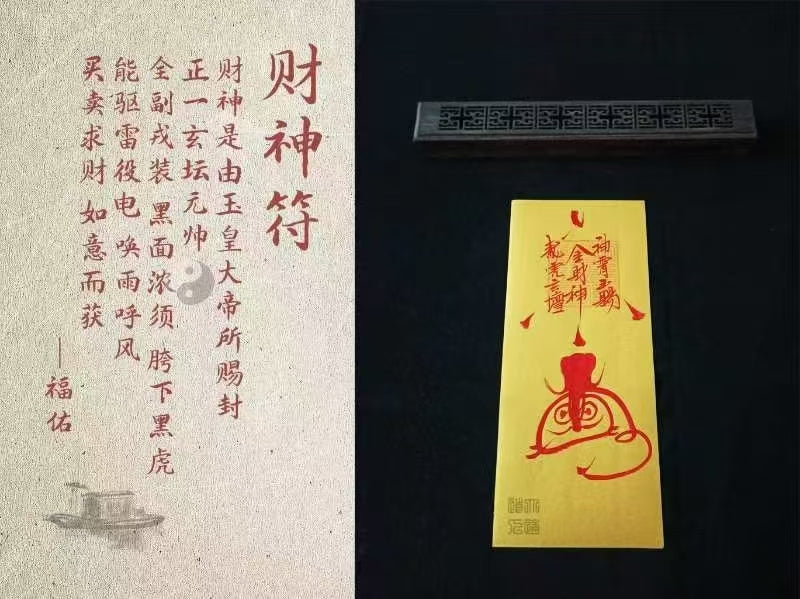 财神符
财神是由玉皇大帝所赐封
正一玄坛元帅
全副戎装 黑面浓须 胯下黑虎
能驱雷役电 唤雨呼风
买卖求财 如意而获
—福佑
神霄玉
財神
龍虎玄壇